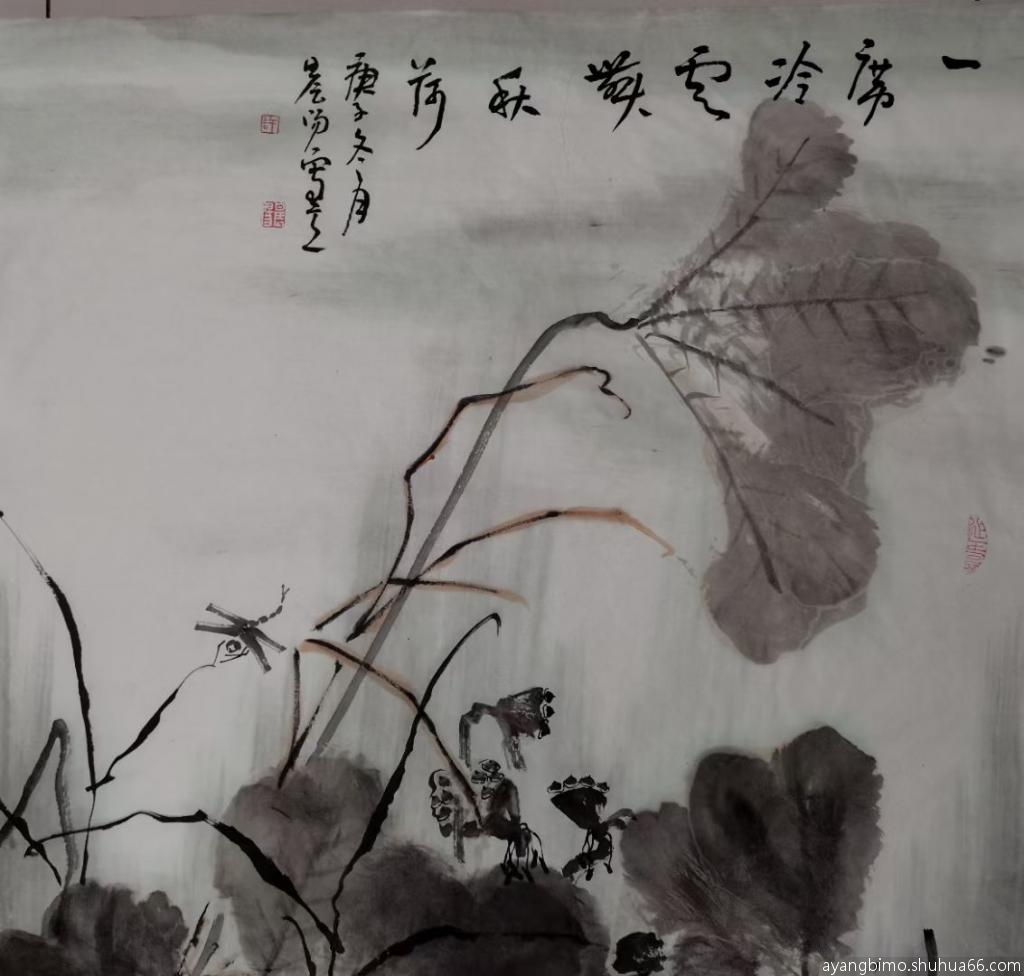 一席冷雲舞秋荷
庚子冬月
ayangbimo.shuhua66.com